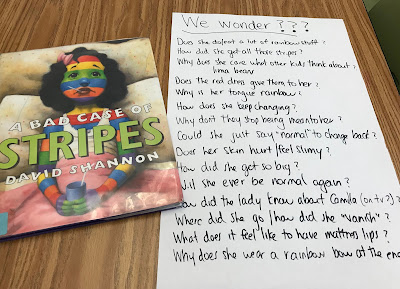 A BAD CASE OF
STRIPES
DAVID SHANNON
We Wonder ? ? ?
Does she do/eat a lot of rainbow stuff?
How did she get all those stripes?
Why does she care what other kids think about?
lima beans
Does the red dress give them to her?
Why is her tongue rainbow?
How does she keep changing?
Why don't they stop being mean to her?
Could she just say "normal" to change back?
Does her skin hurt/feel slimy?
How did she get so big?
Will she ever be normal again?
How did the lady know about Camilla (on tv?)?
Where did she go/how did she "vanish"?
What does it feel like to have mattress lips?
Why does she wear a rainbow bow at the end